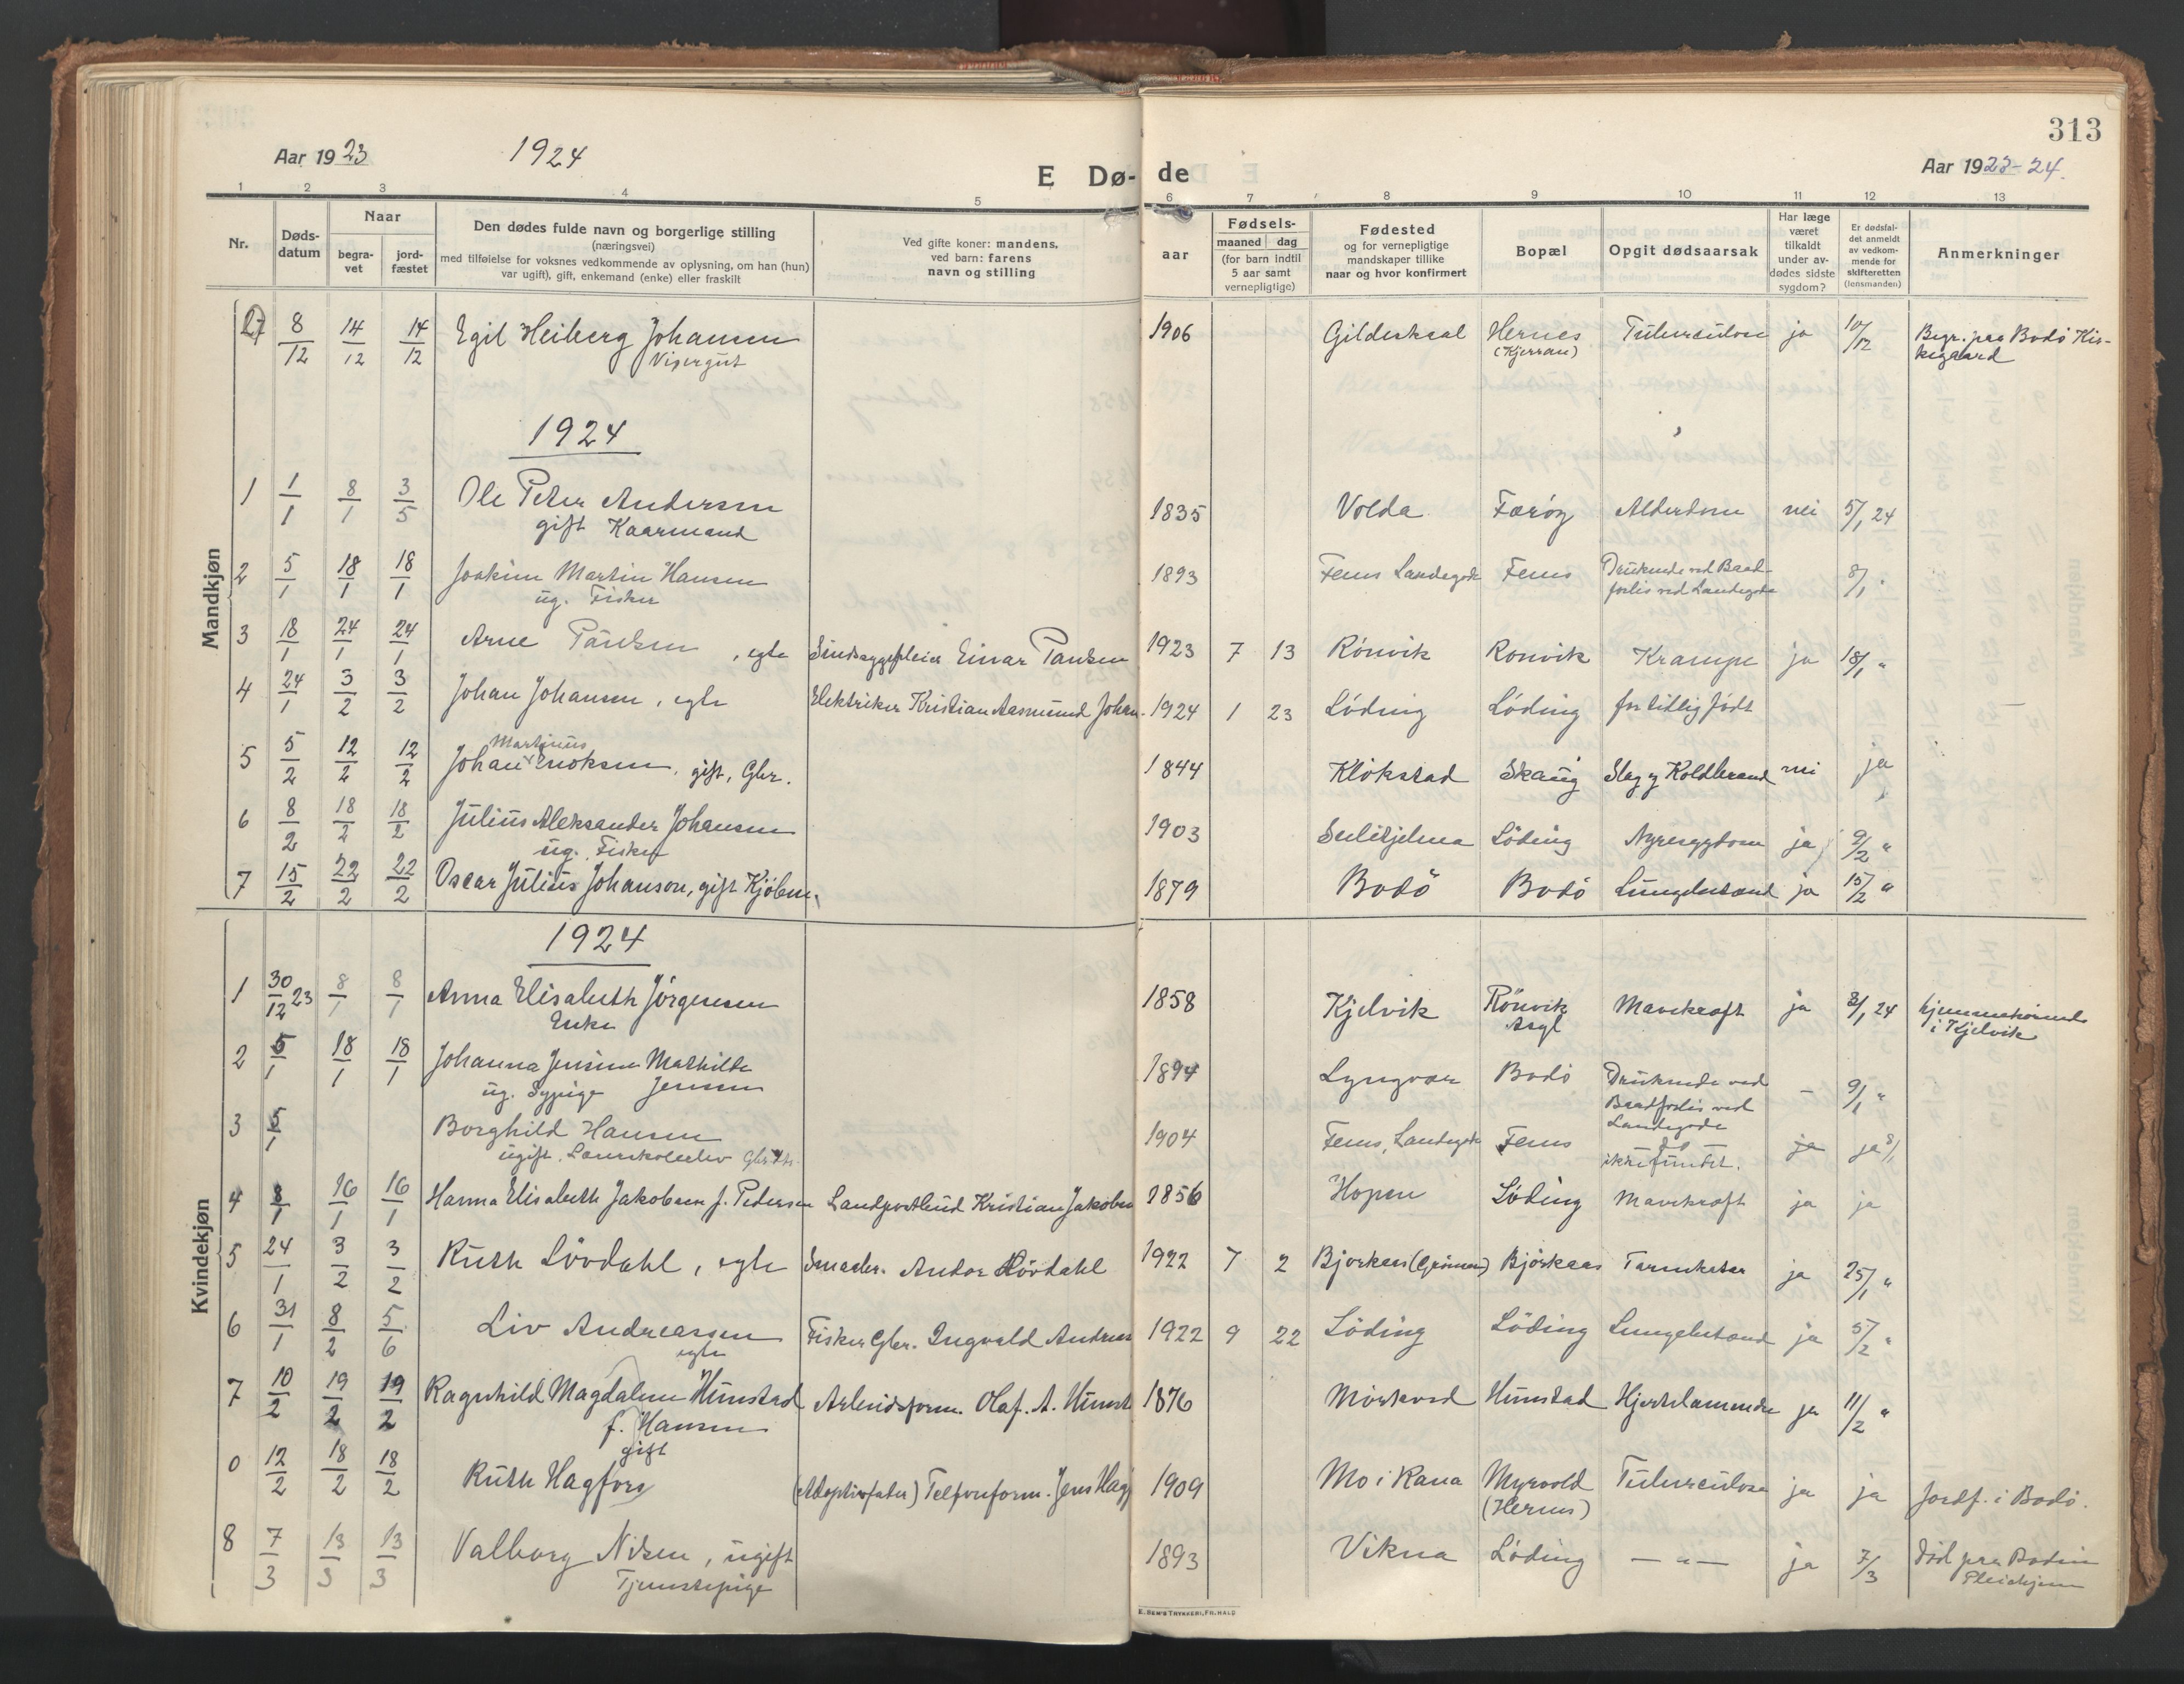 313
Aar 1923 1924 E Dø- de Aar 1923-24.
1 2 3 4 5 6 7 8 9 10 11 12 13
Nr.
Døds-
datum
Naar
begra-
vet
jord-
fæstet
Den dødes fulde navn og borgerlige stilling
(næringsvei)
med tilføielse for voksnes vedkommende av oplysning, om han (hun)
var ugift), gift, enkemand (enke) eller fraskilt
Ved gifte koner: mandens,
ved barn: farens
navn og stilling
Fødsels-
aar
maaned dag
(for barn indtil
5 aar samt
vernepligtige)
Fødested
og for vernepligtige
mandskaper tillike
naar og hvor konfirmert
Bopæl
Opgit dødsaarsak
Har læge
været
tilkaldt
under av-
dødes sidste
sygdom?
Er dødsfal-
det anmeldt
av vedkom-
mende for
skifteretten
(lensmanden)
Anmerkninger
Mandkjøn
27 8/12 14/12 14/12 Egil Heiberg Johansen 1906 Gildeskaal Hernes Tuberculose ja 10/12 Begr. paa Bodö Kir-
Visergut (Kjerran) kegaard
1924
1 1/1 8/1 3/5 Ole Peter Andersen 1835 Volda Færöy Alderdom nei 5/1 24
gift Kaarmand
2 5/1 18/1 18/1 Joakim Martin Hansen 1893 Fenes Landegode Fenes Druknede ved Baad- 8/1 "
ug. Fisker forlis ved Landegode
3 18/1 24/1 24/1 Arne Paulsen, egte Sindssygepleier Einar Paulsen 1923 7 13 Rönvik Rönvik Krampe ja 18/1 "
4 24/1 3/2 3/2 Johan Johansen, egte Elektriker Kristian Aasmund Johan- 1924 1 23 Löding Löding for tidlig födt
Martinus
5 5/2 12/2 12/2 Johan Enoksen, gift, Gbr. 1844 Klökstad Skaug Slag og Koldbrand nei ja
6 8/2 18/2 18/2 Julius Aleksander Johansen 1903 Sulitjelma Löding Nyresygdom ja 9/2 "
ug. Fisker
7 15/2 22/2 22/2 Oscar Julius Johanson, gift Kjöbm. 1879 Bodö Bodö Lungebetænd ja 15/2 "
Kvindekjøn
1924
1 30/12 23 8/1 8/1 Anna Elisabeth Jörgensen 1858 Kjelvik Rönvik Mavekræft ja 3/1 24 hjemmehörende
Enke Asyl i Kjelvik
2 5/1 18/1 18/1 Johanna Jensine Mathilde 1894 Lyngvær Bodö Druknede ved – 9/1 "
ug. Sypige Jensen Baadforlis ved
Landegode
3 5/1 Borghild Hansen 1904 Fenes, Landegode Fenes do ja ja 8/1
ugift. ikke fundet.
4 8/1 16/1 16/1 Hanna Elisabeth Jakobsen f. Pedersen Landpostbud Kristian Jakobsen 1856 Hopen Löding Mavekræft ja ja
5 24/1 3/2 3/2 Ruth Lövdahl, egte Smaabr. Andor Lövdahl 1922 7 2 Bjørkaas Bjørkaas Tarmkatar ja 25/1 "
6 31/1 8/2 5/6 Liv Andreassen Fisker Gbr. Ingvald Andreas 1922 9 22 Löding Löding Lungebetænd ja 5/2 "
egte
7 10/2 19/2 19/2 Ragnhild Magdalene Hunstad Arbeidsform. Olaf. A. Hunst 1876 Mörkved Hunstad Hjertelammelse ja 11/2 "
f. Hansen
gift
0 12/2 18/2 18/2 Ruth Hagfors (Adoptivfader) Telfonform. Jens Hagf 1909 Mo i Rana Myrvold Tuberculose ja ja Jordf. i Bodö.
(Hernes)
8 7/3 13/3 13/3 Valborg Nilsen, ugift 1893 Vikna Löding — " — ja 7/3 Död paa Bodin
Tjenestepige Pleiehjem
E. SEM'S TRYKKERI, FR. HALD